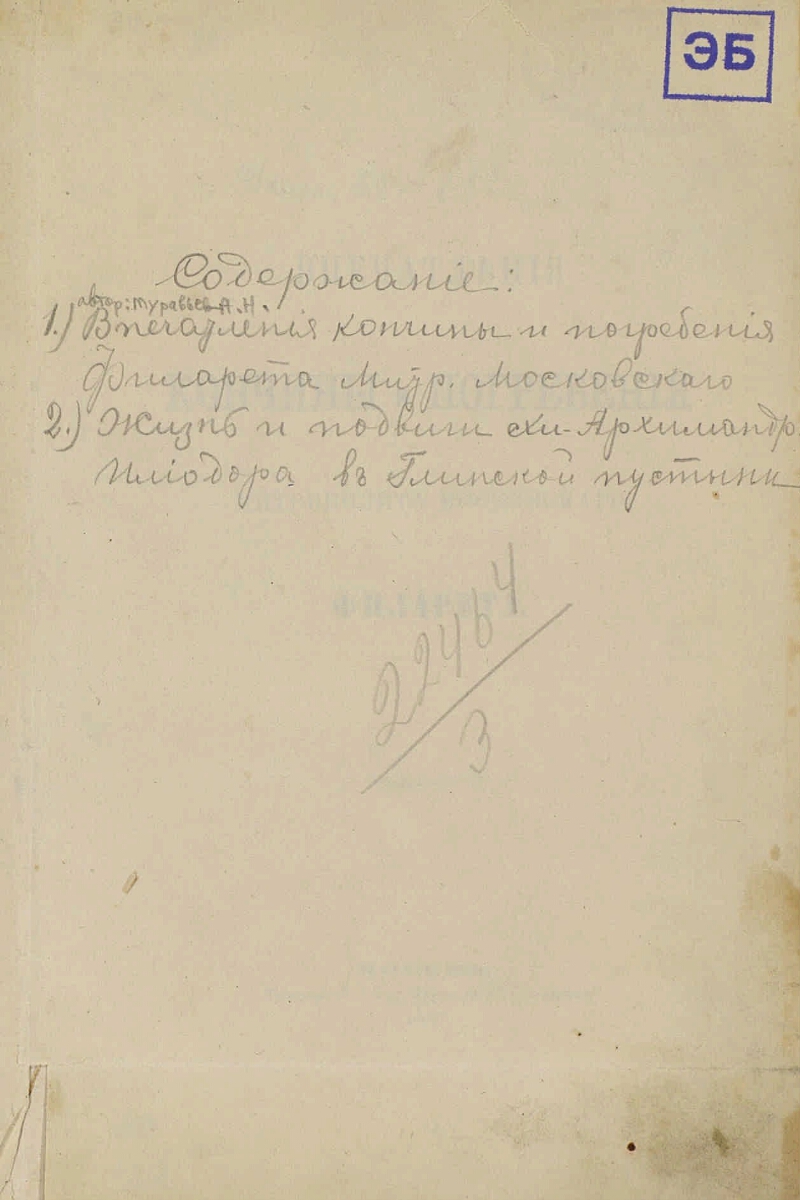 ЭБ
Содержаніе:
автор: Муравьев А. Н.
1.) Впечатленія кончины и погребенія
Филарета Митр. Московскаго
2.) Жизнь и подвиги схи-Архимандр.
Иліодора въ Глинской пустыни
22464
3